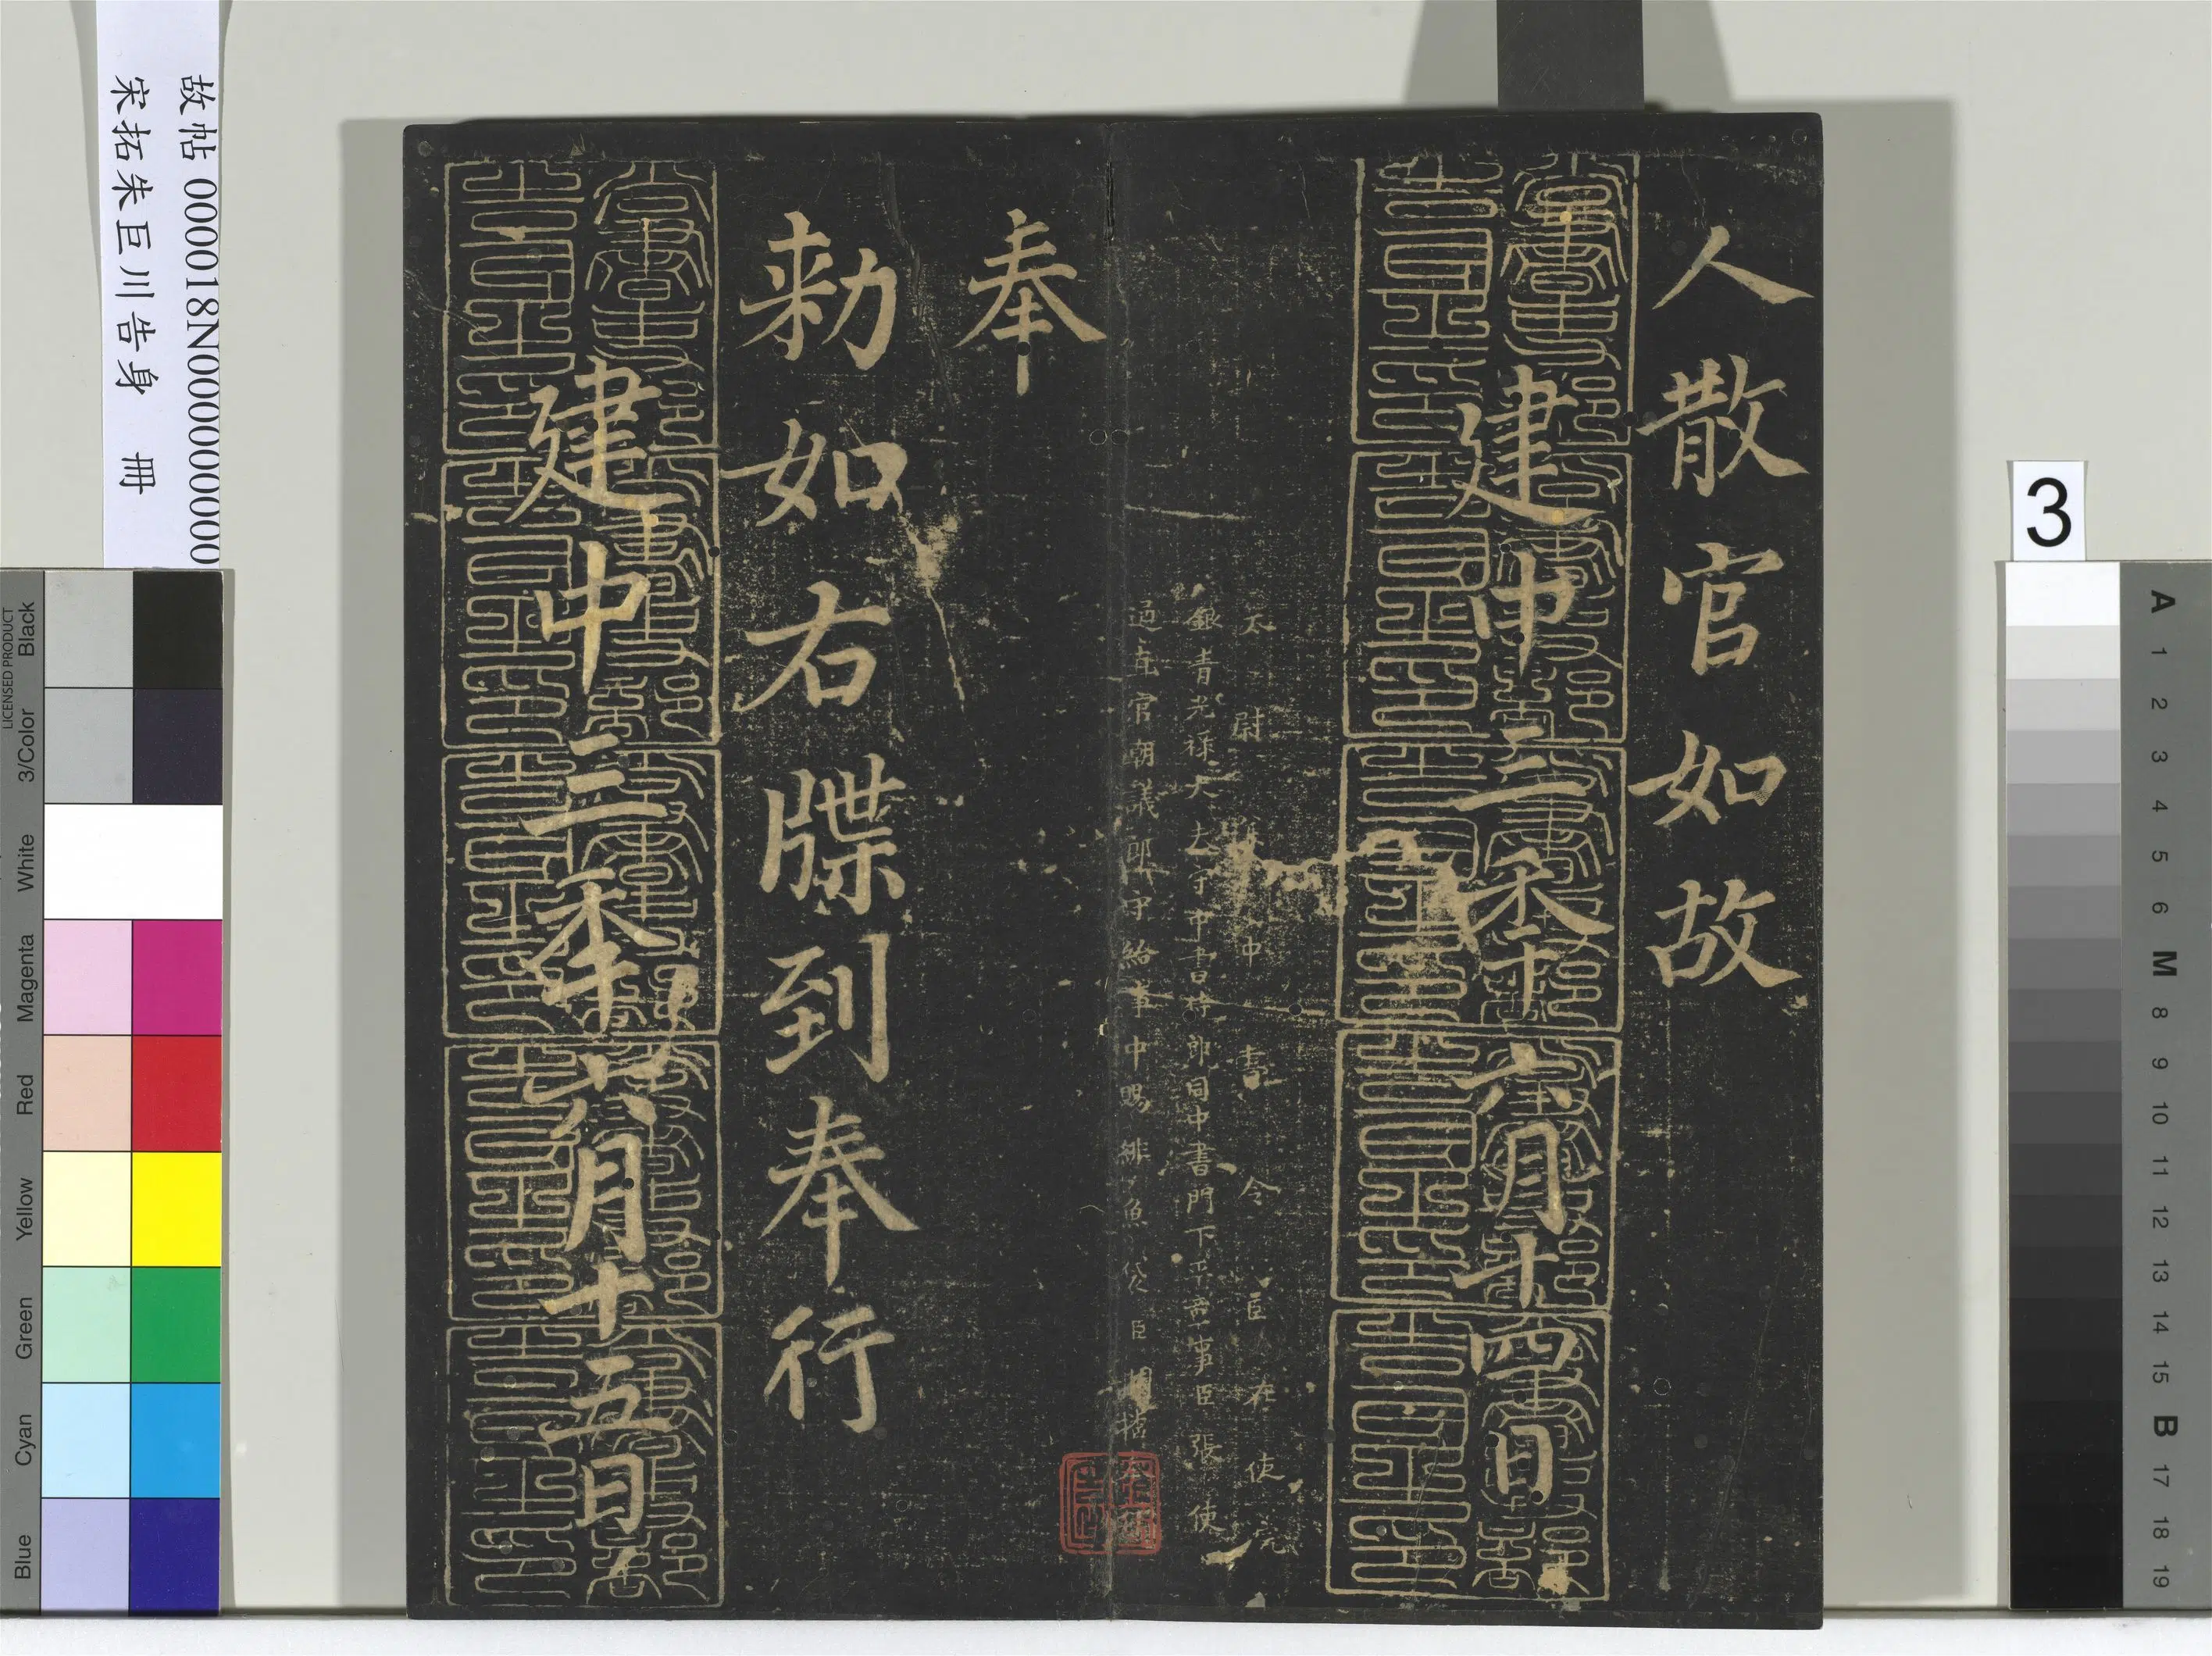 人散官如故
建中三秊六月十四日
太尉兼中書令臣在使院
銀青光祿大夫守中書侍郎同中書門下平章事臣張使
過直官朝議郎守給事中賜緋魚袋臣
奉
勑如右牒到奉行
建中三秊六月十五日
尚書吏部告身之印
故帖 000018N000000000
宋拓朱巨川告身 冊
3
A 1 2 3 4 5 6 M 8 9 10 11 12 13 14 15 B 17 18 19
LICENSED PRODUCT
Blue Cyan Green Yellow Red Magenta White 3/Color Black